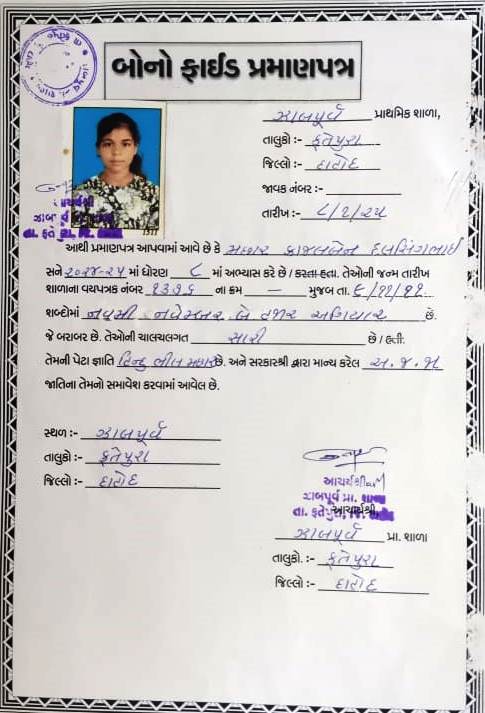 બોનો ફાઈડ પ્રમાણપત્ર
ઝાબપૂર્વ પ્રાથમિક શાળા,
તાલુકો :- ફતેપુરા
જિલ્લો :- દાહોદ
જાવક નંબર :-
તારીખ :- ૮/૧/૨૫
આચાર્યશ્રી
તા. ફતેપુરા, જિ. દાહોદ
આથી પ્રમાણપત્ર આપવામાં આવે છે કે મછાર કાજલબેન દલસિંગભાઈ
સને ૨૦૨૪-૨૫ માં ધોરણ ૮ માં અભ્યાસ કરે છે / કરતા હતા. તેઓની જન્મ તારીખ
શાળાના વયપત્રક નંબર ૧૩૭૬ ના ક્રમ — મુજબ તા. ૯/૧૧/૧૧
શબ્દોમાં નવમી નવેમ્બર બે હજાર અગિયાર છે.
જે બરાબર છે. તેઓની ચાલચલગત સારી છે / હતી.
તેમની પેટા જ્ઞાતિ હિન્દુ ભીલ મછાર છે. અને સરકારશ્રી દ્વારા માન્ય કરેલ અ.જ.જા
જાતિના તેમનો સમાવેશ કરવામાં આવેલ છે.
સ્થળ :- ઝાબપૂર્વ
તાલુકો :- ફતેપુરા
જિલ્લો :- દાહોદ
આચાર્યશ્રી
ઝાબપૂર્વ પ્રા. શાળા
તા. ફતેપુરા, જિ. દાહોદ
આચાર્યશ્રી,
ઝાબપૂર્વ પ્રા. શાળા
તાલુકો. :- ફતેપુરા
જિલ્લો :- દાહોદ